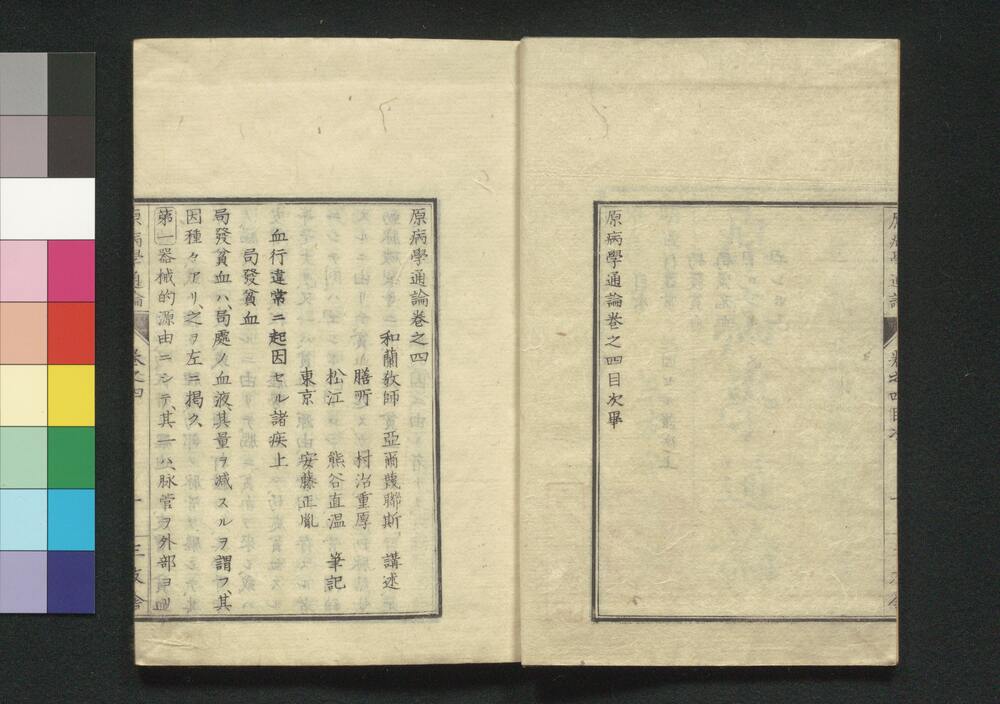 原病學通論巻之四目次畢
原病學通論巻之四
和蘭教師 亞爾蔑聯斯 講述
膳所 村治重厚
松江 熊谷直温 筆記
東京 安藤正胤
血行違常ニ起因セル諸疾上
局發貧血
局發貧血ハ、局處ノ血液、其量ヲ減スルヲ謂フ、其
因種々アリ、之ヲ左ニ掲ク、
第一器械的源由ニシテ、其一ハ、脉管ヲ外部ヨリ